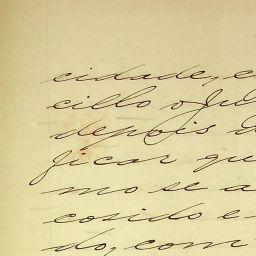 cidade, e
cillo o Jul
depois d
ficar que
mo se a
cosido e
do, com